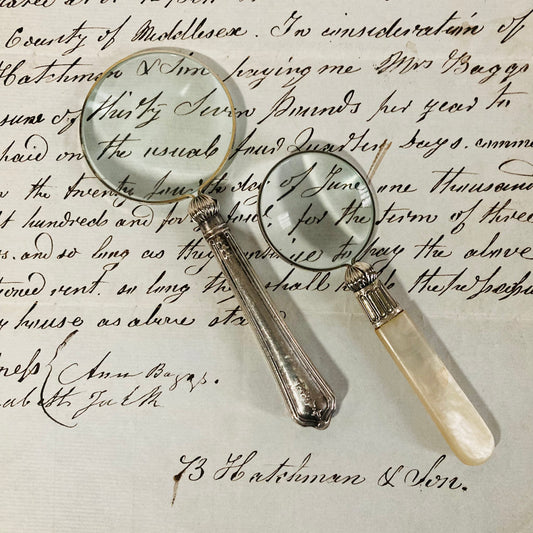 County of Middlesex. In consideration of
Hatchman & Son paying me Mrs Baggs
sume of thirty Seven Pounds per year to
paid on the usual four Quarter Days. comme
the twenty fourth day of June one thousand
hundreds and for the term of three
and so long as they continue to pay the above
rent. so long shall the
house as above
ness Ann Baggs.
73 Hatchman & Son.